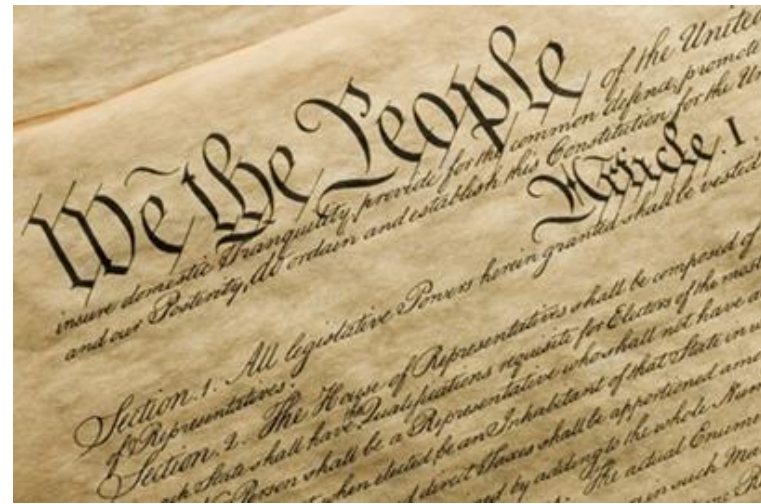 We the People of the United
insure domestic Tranquility, provide for the common defence, promote
and our Posterity, do ordain and establish this Constitution for the Un
Article. I.
Section. 1. All legislative Powers herein granted shall be vested
of Representatives.
Section. 2. The House of Representatives shall be composed of
ach State shall have the Qualifications requisite for Electors of the most
Person shall be a Representative who shall not have a
when elected be an Inhabitant of that State in w
and direct Taxes shall be apportioned amo
by adding to the whole Num
The actual Enume
in such Man